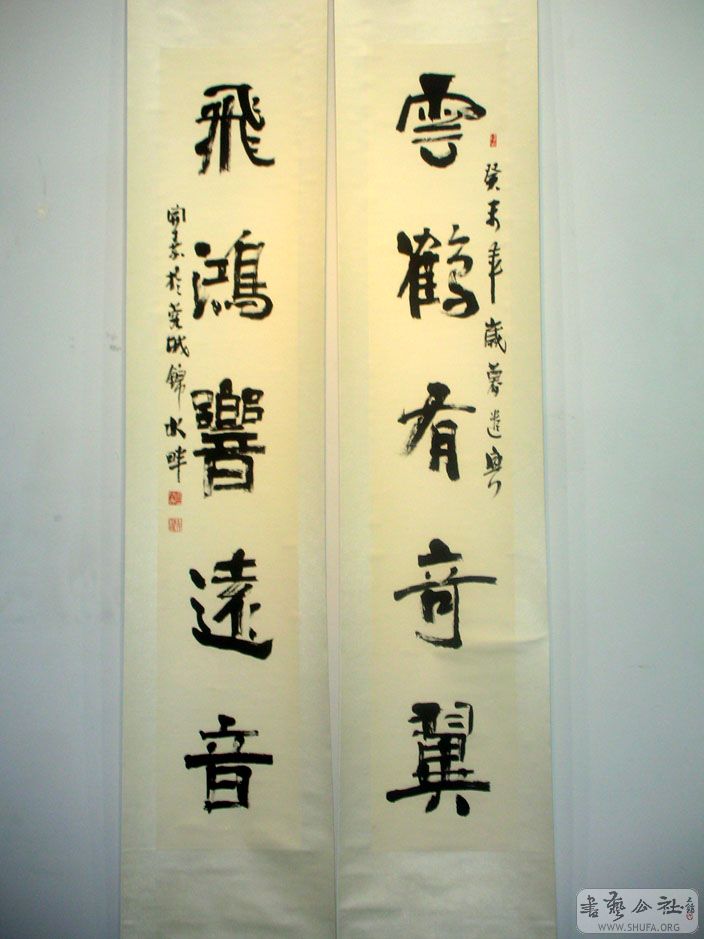 雲鶴有奇翼
癸未年歲暮遣興
飛鴻響遠音
於莞城錦水畔
書藝公社
WWW.SHUFA.ORG